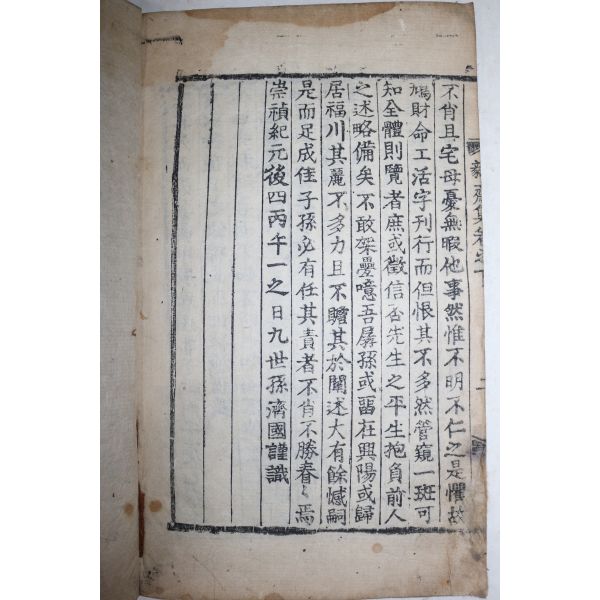 不肖且宅母憂無暇他事然惟不明不仁之是懼故
鳩財命工活字刊行而但恨其不多然管窺一斑可
知全體則覽者庶或徵信否先生之平生抱負前人
之述略備矣不敢架疊噫吾孱孫或留在興陽或歸
居福川其麗不多力且不贍其於闡述大有餘憾嗣
是而足成佳子孫必有任其責者不肖不勝眷〻焉
崇禎紀元後四丙午一之日九世孫濟國謹識
毅齋集卷之